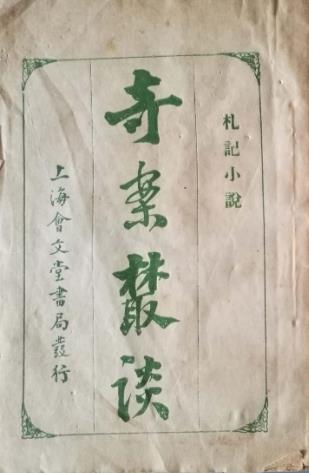 札記小說
奇案叢談
上海會文堂書局發行